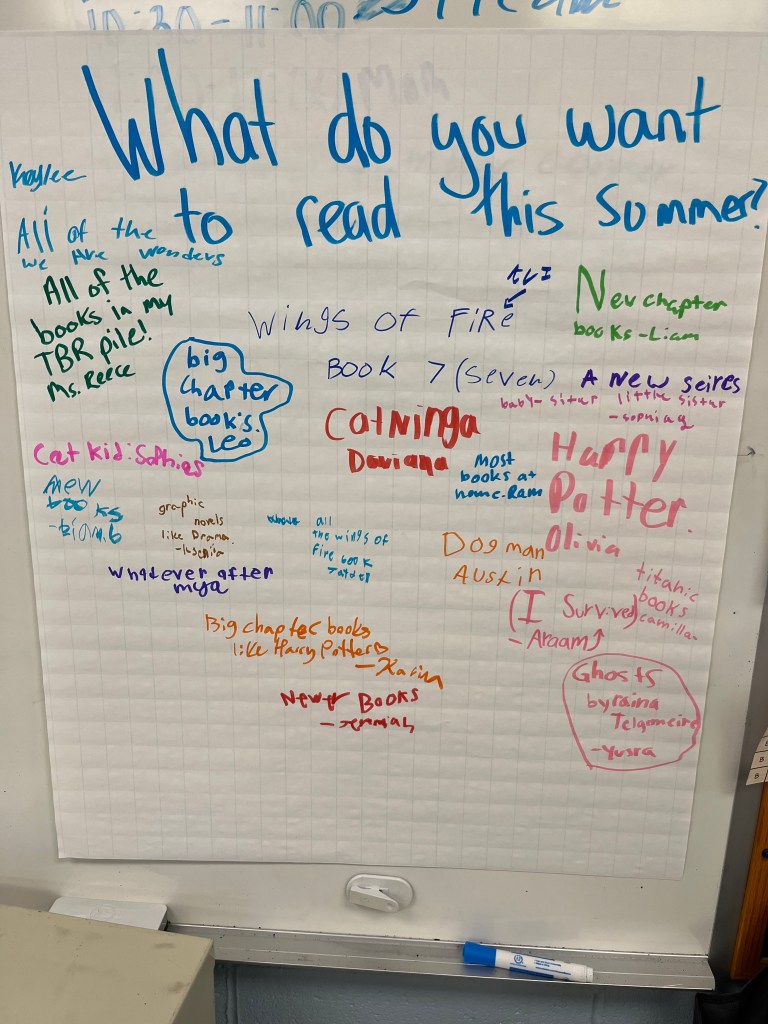 10:30-11:00
What do you want
to read this Summer?
Kaylee
All of the
we Are wonders
All of the
books in my
TBR pile!
Ms. Reece
big
chapter
book's.
Leo
Wings of Fire
Book 7 (seven)
New chapter
books-Liam
A new seires
baby-situr little sistur
CatNinga
Daviana
most
books at
home. Ram
Harry
Potter.
Olivia
Cat kid:
new
books
graphic
novels
like Drama.
all
the wings of
fire book
Dog man
Austin
titanic
books
camilla
(I Survived)
-Araam
whatever after
mya
Big chapter books
like Harry Potter
-Karina
Newer Books
-Jermiah
Ghosts
by raina
Telgameire
-Yusra